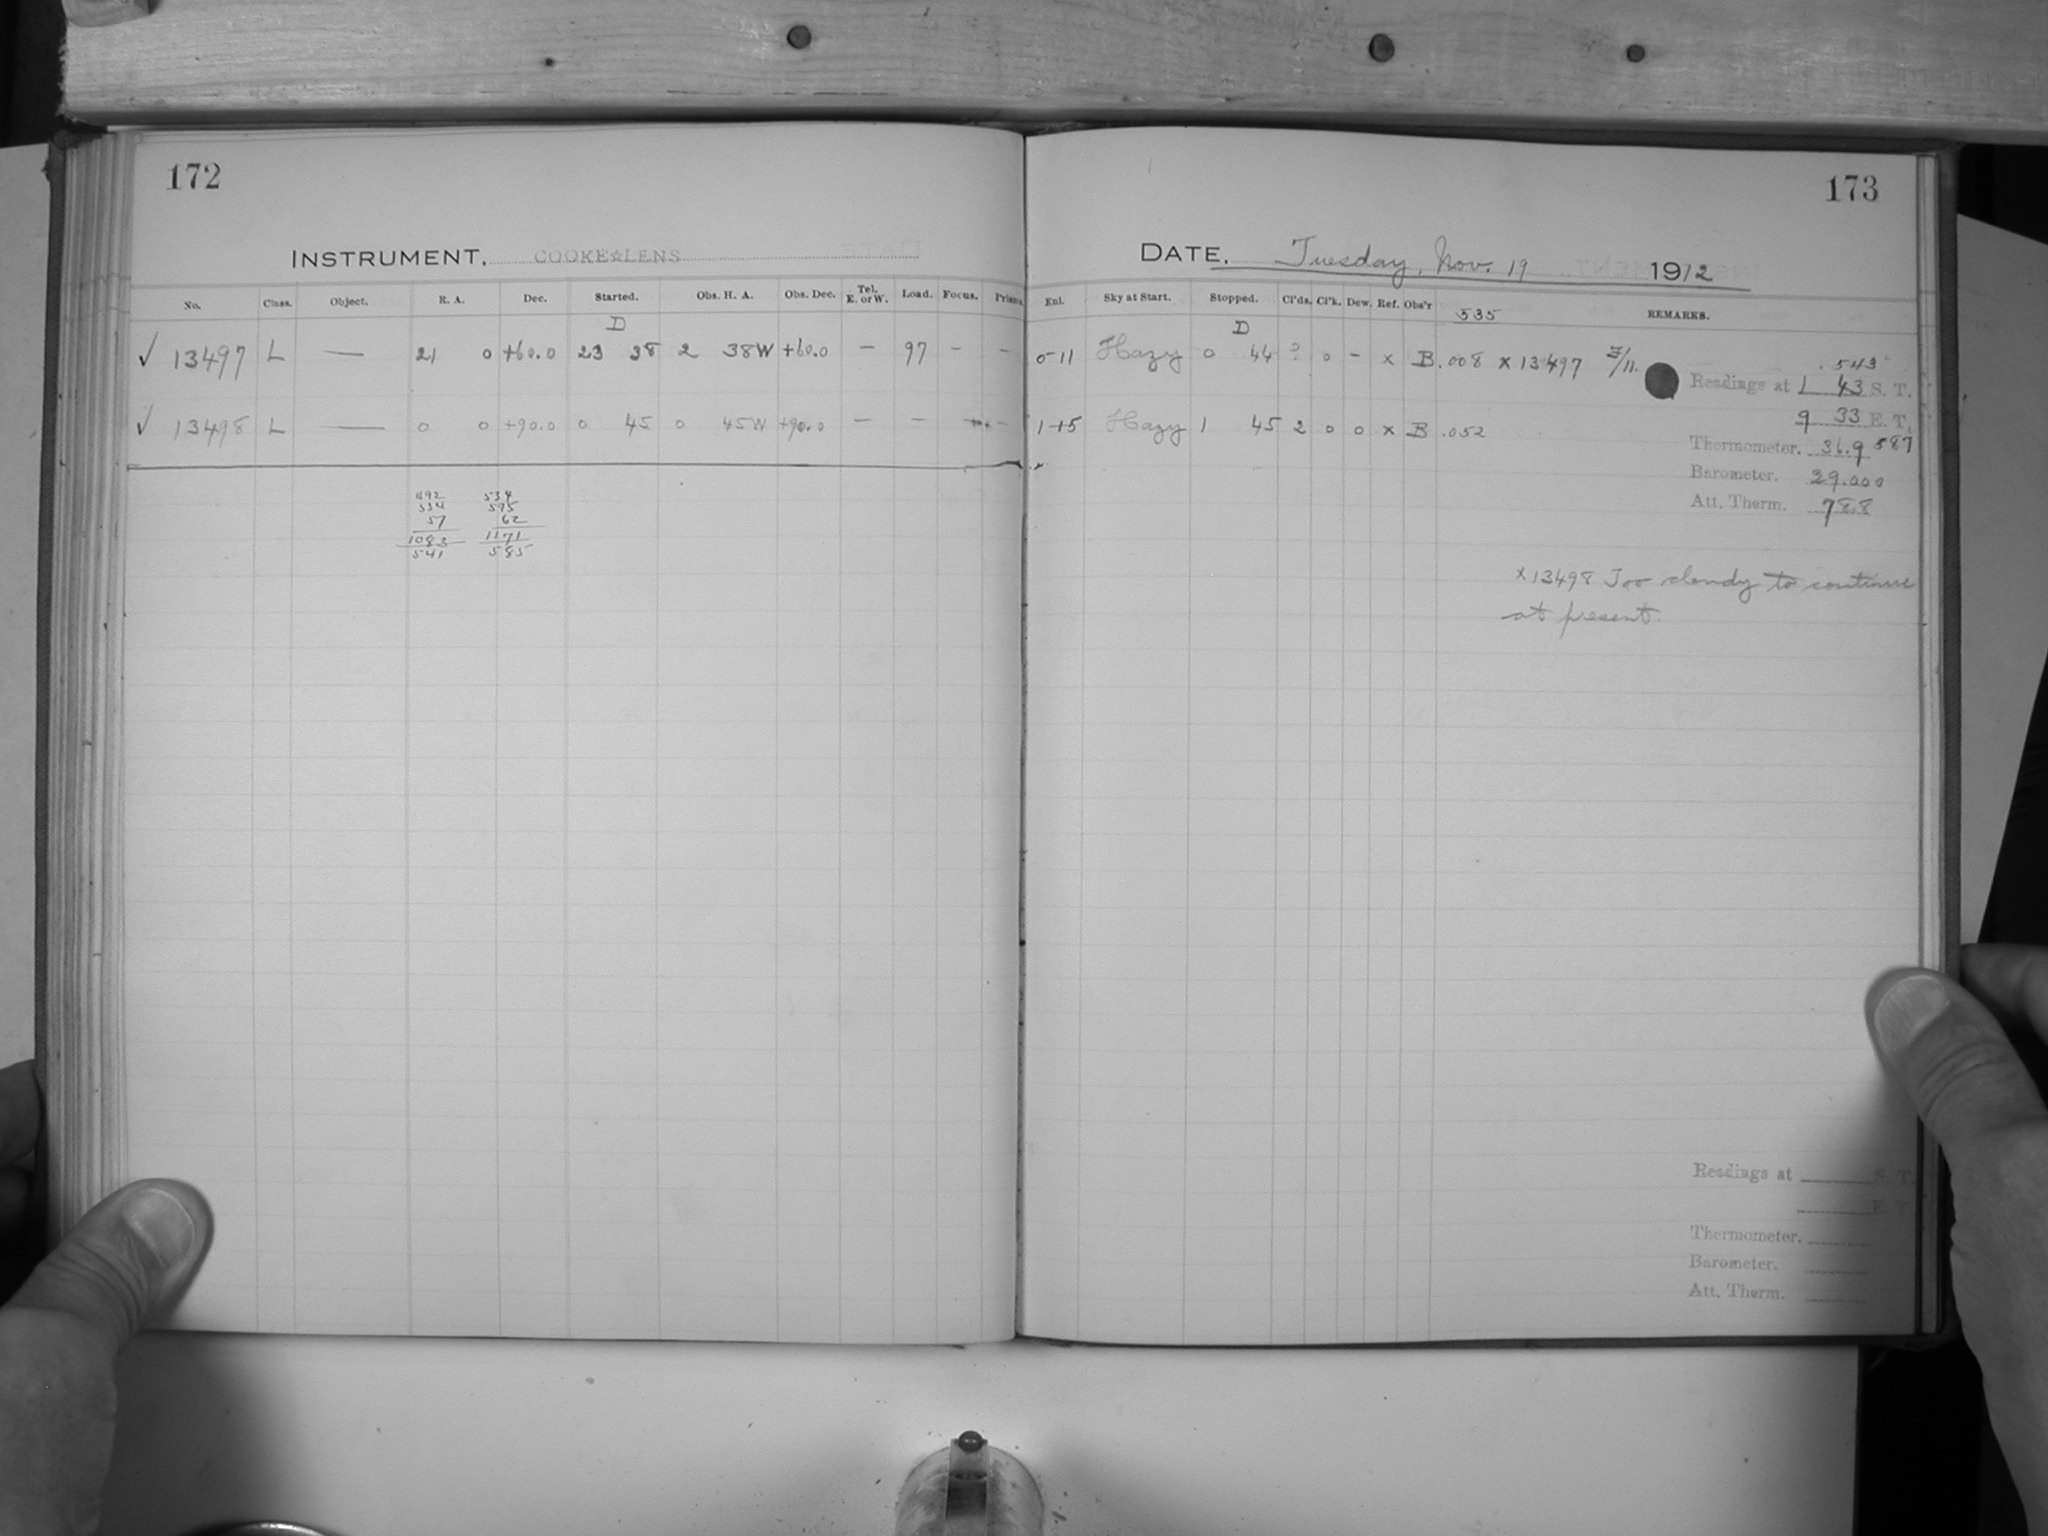 172
INSTRUMENT. COOKE☆LENS
No. Class. Object. R. A. Dec. Started. Obs. H. A. Obs. Dec. Tel. E. or W. Load. Focus. Prisms.
D
✓ 13497 L — 21 0 +60.0 23 38 2 38W +60.0 — 97 – –
✓ 13498 L — 0 0 +90.0 0 45 0 45W +90.0 — –
492 534
334 575
57 62
1083 1171
541 585
173
DATE. Tuesday, Nov. 19 1912
Enl. Sky at Start. Stopped. Cl'ds. Cl'k. Dew. Ref. Obs'r 535 REMARKS.
D
0-11 Hazy 0 44 ? 0 – x B .008 x 13497 /11.
.543
Readings at 1 43 S. T.
9 33 E. T.
1+5 Hazy 1 45 2 0 0 x B .052
Thermometer. 36.9 587
Barometer. 29.000
Att. Therm. 78.8
x 13498 Too cloudy to continue
at present.
Readings at S. T.
E. T.
Thermometer.
Barometer.
Att. Therm.